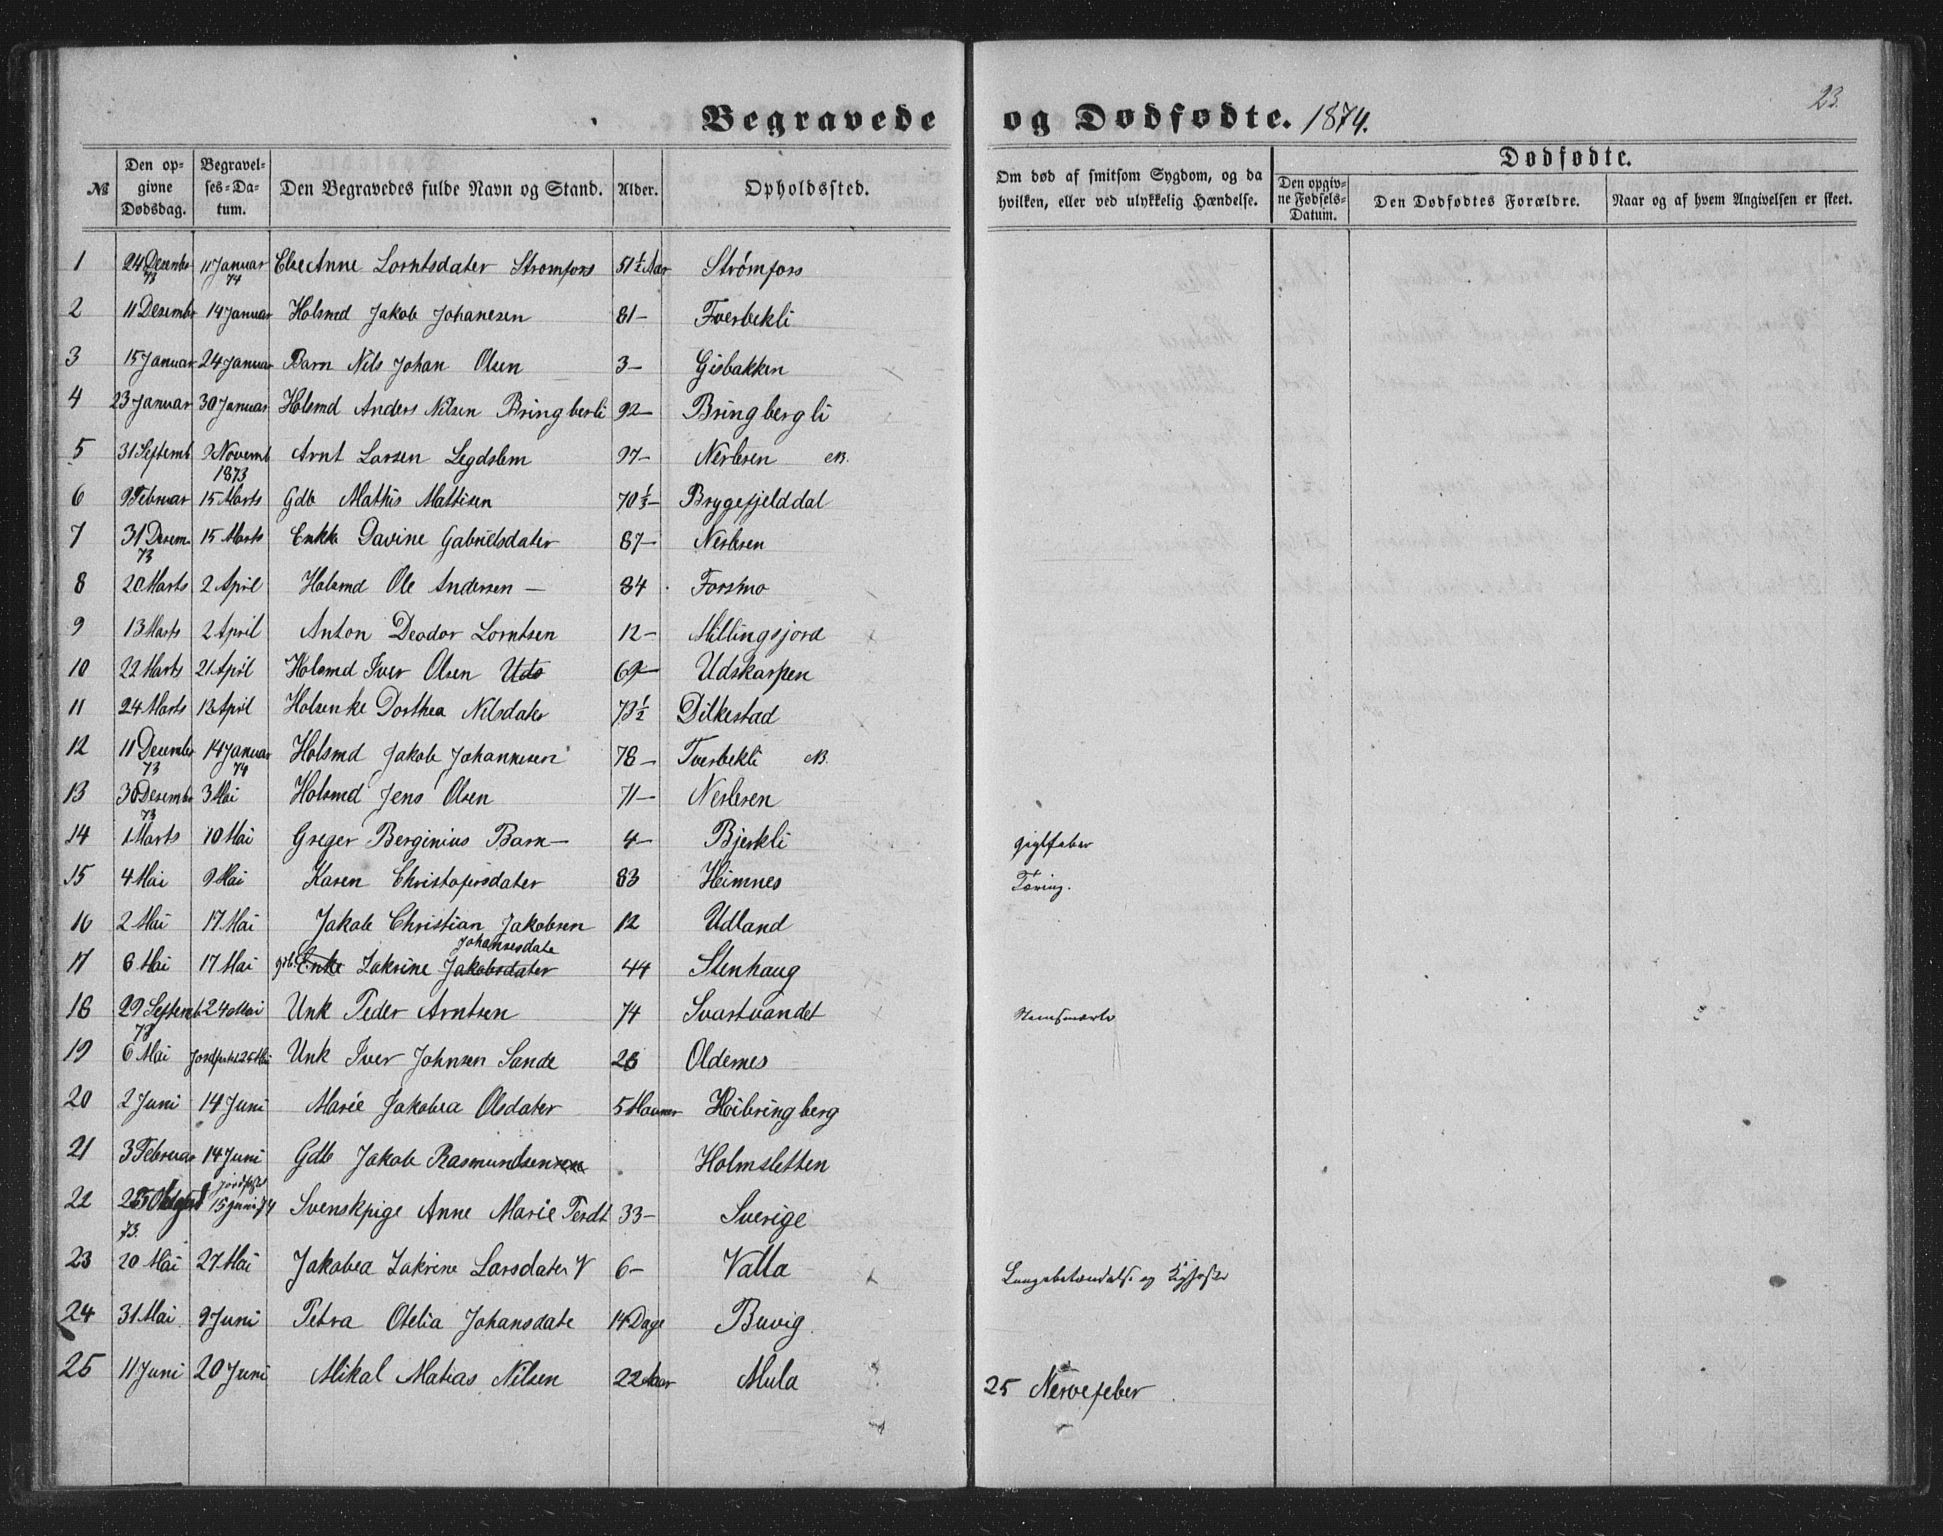 23.
Begravede og Dødfødte. 1874.
№ Den opgivne Dødsdag. Begravelses-Datum. Den Begravedes fulde Navn og Stand. Alder. Opholdssted. Om død af smitsom Sygdom, og da hvilken, eller ved ulykkelig Hændelse. Dødfødte. Den opgivne Fødsels-Datum. Den Dødfødtes Forældre. Naar og af hvem Angivelsen er skeet.
1 24 Desembr 73 11 Januar 74 Else Anne Lorntsdater Strømfors 51½ Aar Strømfors
2 11 Desembr 14 Januar Holsmd Jakob Johanesen 81– Tverbekli
3 15 Januar 24 Januar Barn Nils Johan Olsen 3– Gisbakken
4 23 Januar 30 Januar Holsmd Anders Nilsen Bringberli 92– Bringbergli
5 31 Septemb 9 Novemb 1873 Arnt Larsen Legdslem 97– Nerleren NB.
6 9 Februar 15 Marts Gdb Mathis Mattisen 70⅓– Brygefjelddal
7 31 Desem. 73 15 Marts Enkke Davine Gabrielsdater 87– Nerleren
8 20 Marts 2 April Holsmd Ole Andersen – 84 Forsmo
9 13 Marts 2 April Anton Deodor Lorntsen 12– Millingsjord
10 22 Marts 21 April Holsmd Iver Olsen Uds 69– Udskarpen
11 24 Marts 12 April Holsenke Dorthea Nilsdater 73½ Dilkestad
12 11 Desember 73 14 Januar 74 Holsmd Jakob Johannesen 78– Tverbekli NB.
13 30 Desembr 73 3 Mai Holsmd Jens Olsen 71– Nerleren
14 1 Marts 10 Mai Greger Berginius Barn– 4– Bjerkli gigtfeber
15 4 Mai 9 Mai Karen Christofersdater 83 Heimnes Tæring.
16 2 Mai 17 Mai Jakob Christian Jakobsen 12 Udland
17 8 Mai 17 Mai gdb. Enke Zakrine Jakobsdater Johannesdate 44 Stenhaug
18 29 Septemb 73 24 Mai Unk Peder Arntsen 74 Svartvandet
19 6 Mai Jordfestet 25 Mai Unk Iver Johnsen Sande 26 Oldernes
20 2 Juni 14 Juni Marie Jakobea Olsdater 5 Maaner Høibringberg
21 3 Februar 14 Juni Gdb Jakob Rasmundsen Holmsletten
22 25 73. Jordfestet 15 Juni 74 Svenskpige Anne Marie Ferdt 33– Sverige
23 20 Mai 27 Mai Jakobea Zakrine Larsdater V 6– Valla Lungebetændelse og Kighoste
24 31 Mai 9 Juni Petra Otelia Johansdate 14 Dage Buvig
25 11 Juni 20 Juni Mikal Matias Nilsen 22 Aar Mula 25 Nervefeber